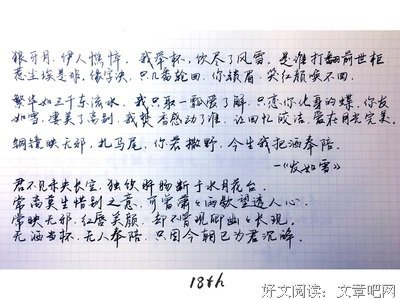 狼牙月，伊人憔悴，我举杯，饮尽了风雪，是谁打翻前世柜
惹尘埃是非，缘字诀，几番轮回，你锁眉，哭红颜唤不回
繁华如三千东流水，我只取一瓢爱了解，只恋你化身的蝶，你发
如雪，凄美了离别，我焚香感动了谁，让回忆皎洁，爱在月光完美。
铜镜映无邪，扎马尾，你若撒野，今生我把酒奉陪。
—《发如雪》
君不见未央长空，独饮肝肠断于水月花台。
常高莫生惜别之意，可曾潇 雨欲望透人心。
常映无邪，红唇笑颜，却不曾现卿幽 长现。
无酒当杯，无人奉陪，只因今朝已为君沉醉。
18th
好文阅读：文章吧网